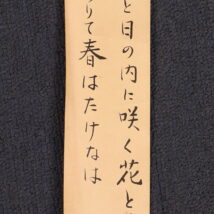 と日の内に咲く花と
りて春はたけなは